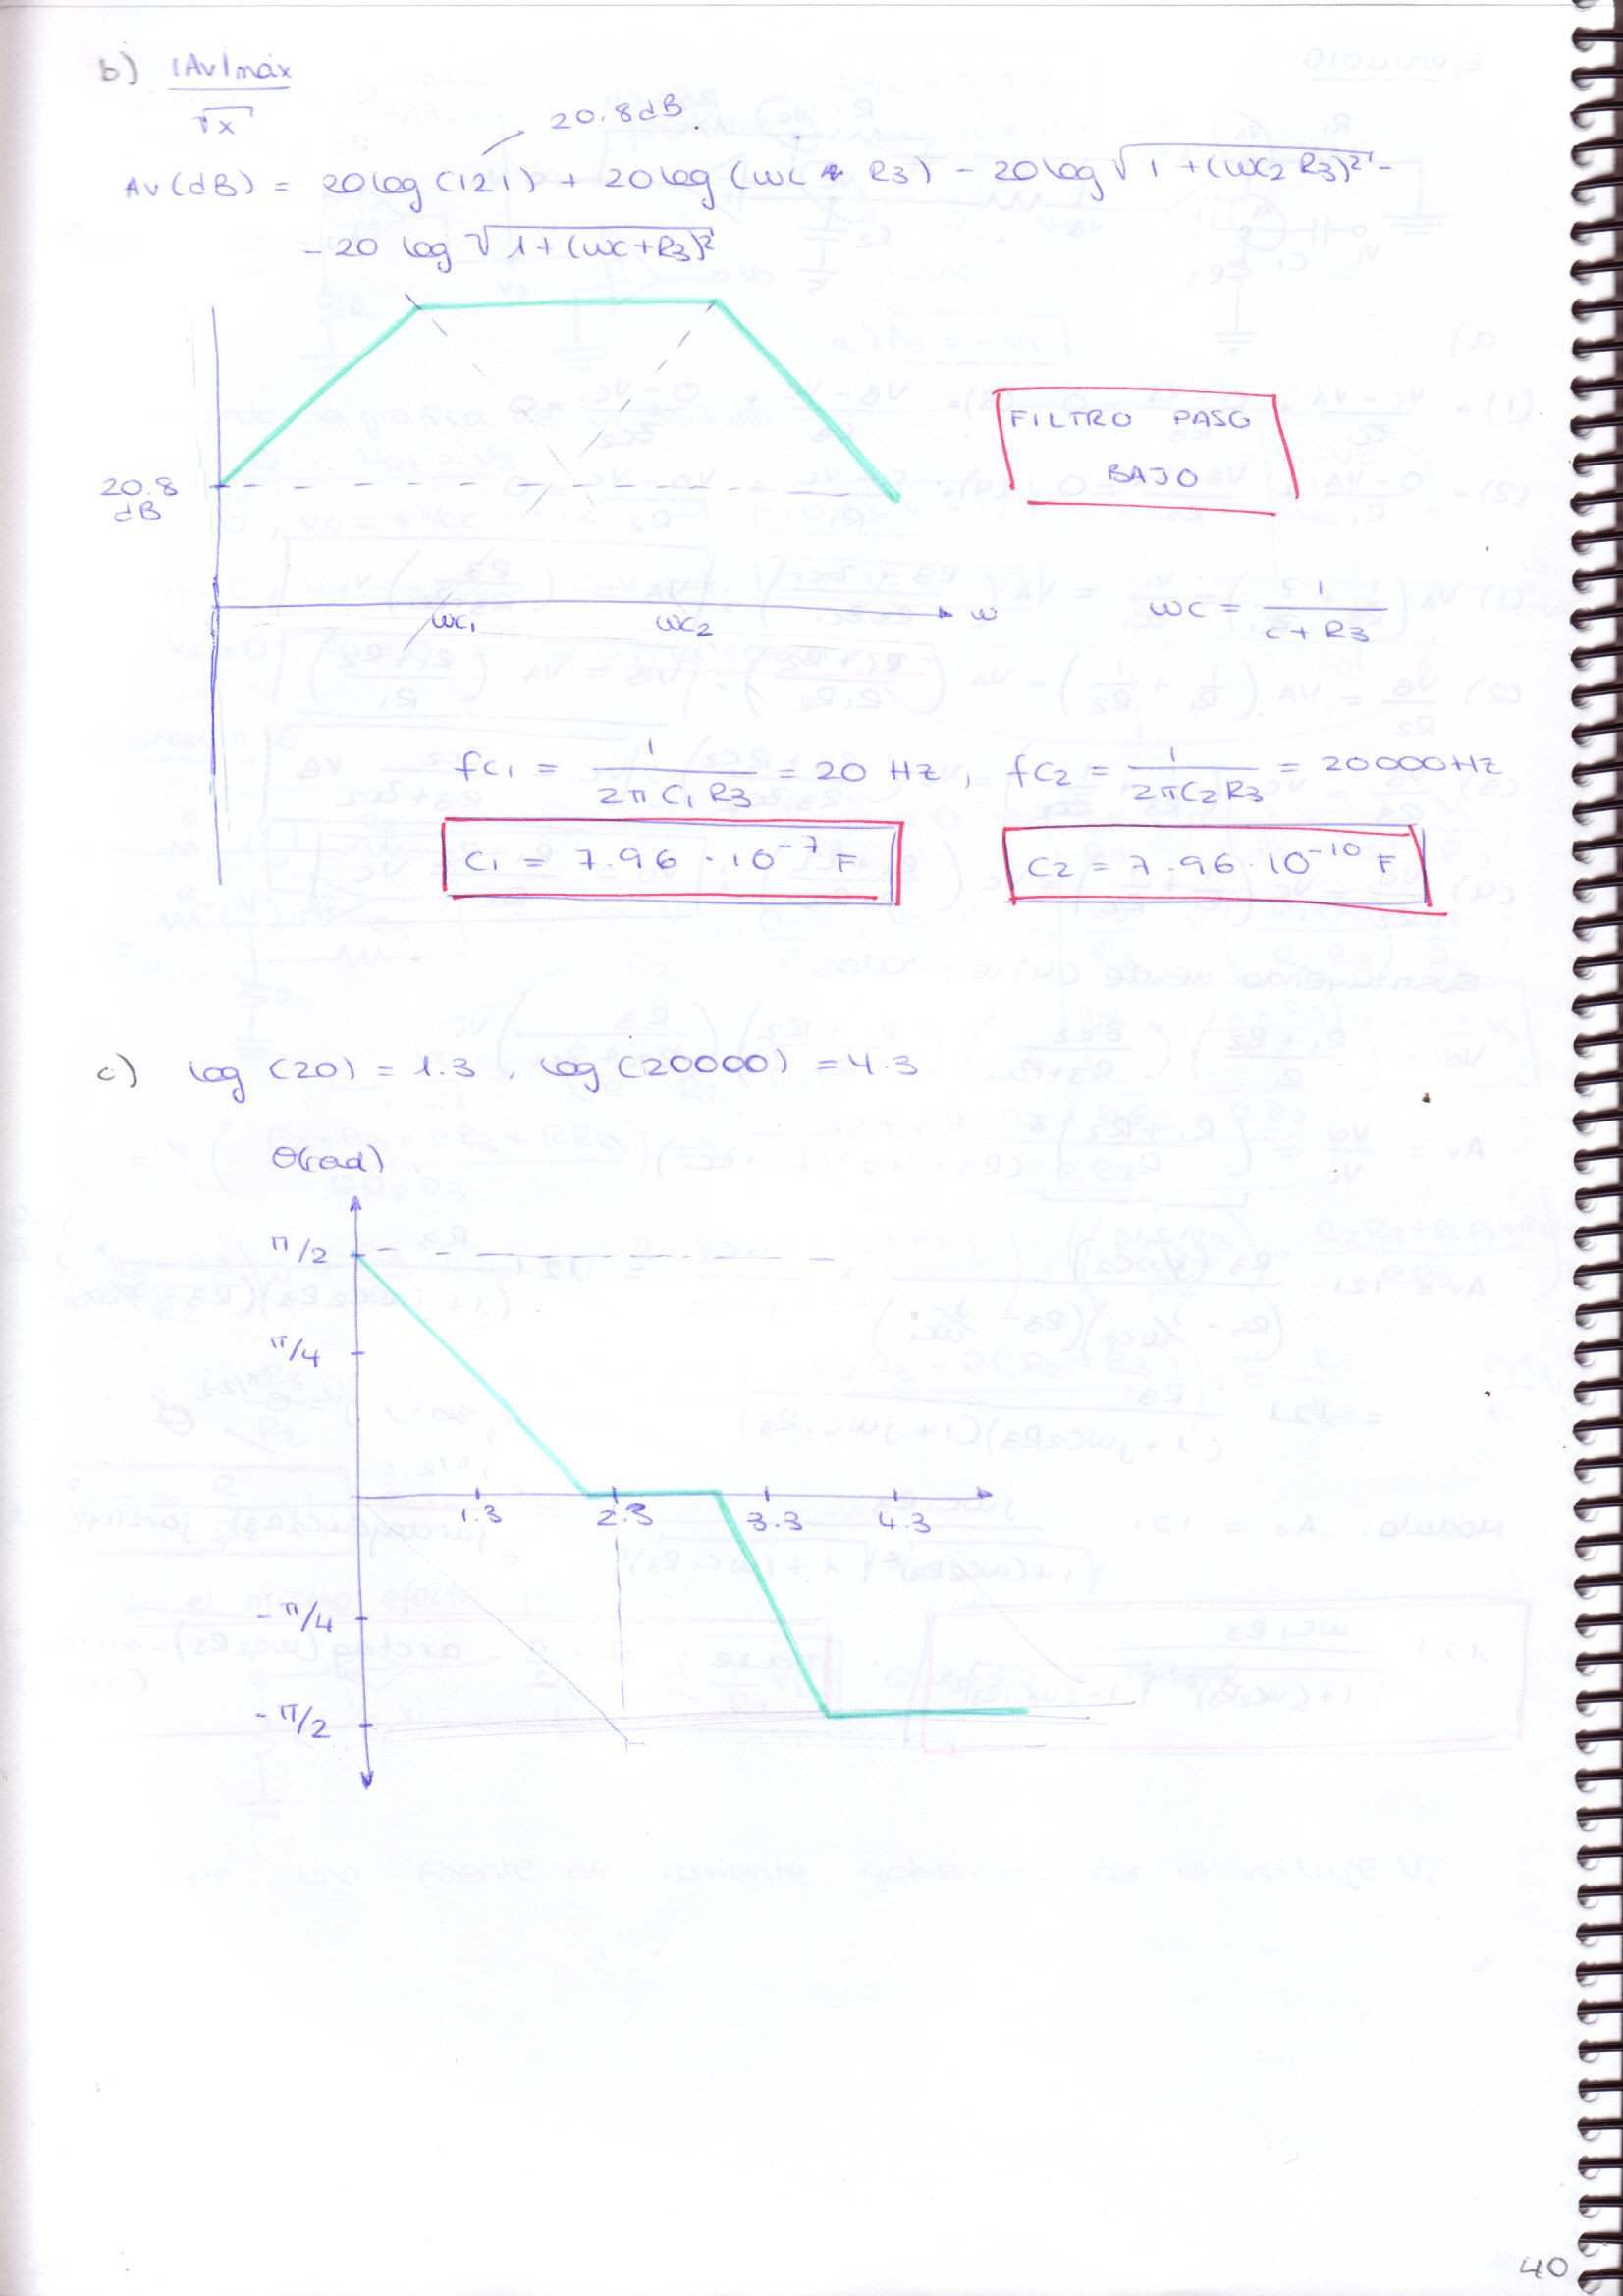 b) |Av|máx
√x
20.8dB
Av(dB) = 20log(121) + 20log(wC1 R3) - 20log√1+(wC2 R3)² -
- 20 log √1+(wC+R3)²
20.8
dB
wC1
wC2
w
FILTRO PASO
BAJO
wc = 1/C+R3
fC1 = 1/2πC1R3 = 20 Hz, fC2 = 1/2πC2R3 = 20000Hz
C1 = 7.96 · 10⁻⁷ F
C2 = 7.96 · 10⁻¹⁰ F
c) log(20) = 1.3, log(20000) = 4.3
θ(rad)
π/2
π/4
1.3
2.3
3.3
4.3
-π/4
-π/2
40